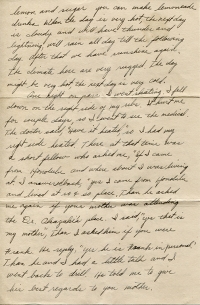 lemon and sugar you can make lemonade
drinks. When the day is very hot the next day
is cloudy and we'll have thunder and
lightning, will rain all day till the following
day. After that we have sunshine again,
the climate here are very rugged. The day
might be very hot the next day is very cold.
One night in past I went skating, I fell
down on the right side of my It hurt me
for couple days, so I went to see the medical.
The doctor said, "have it heated", so I had my
right side heated. There at that time was
a short fellow who asked me, "If I came
from Honolulu and where about I was living
at I answered back, "yes I came from Honolulu
and lived at place. Then he asked
me again if your mother was attending
the Dr. place I said, "yes that is
my mother, Then I asked him if you were
Frank. He reply, "yes he is Frank in personal.
Then he and I had a little talk and I
went back to drill. He told me to give
his best regards to you mother.